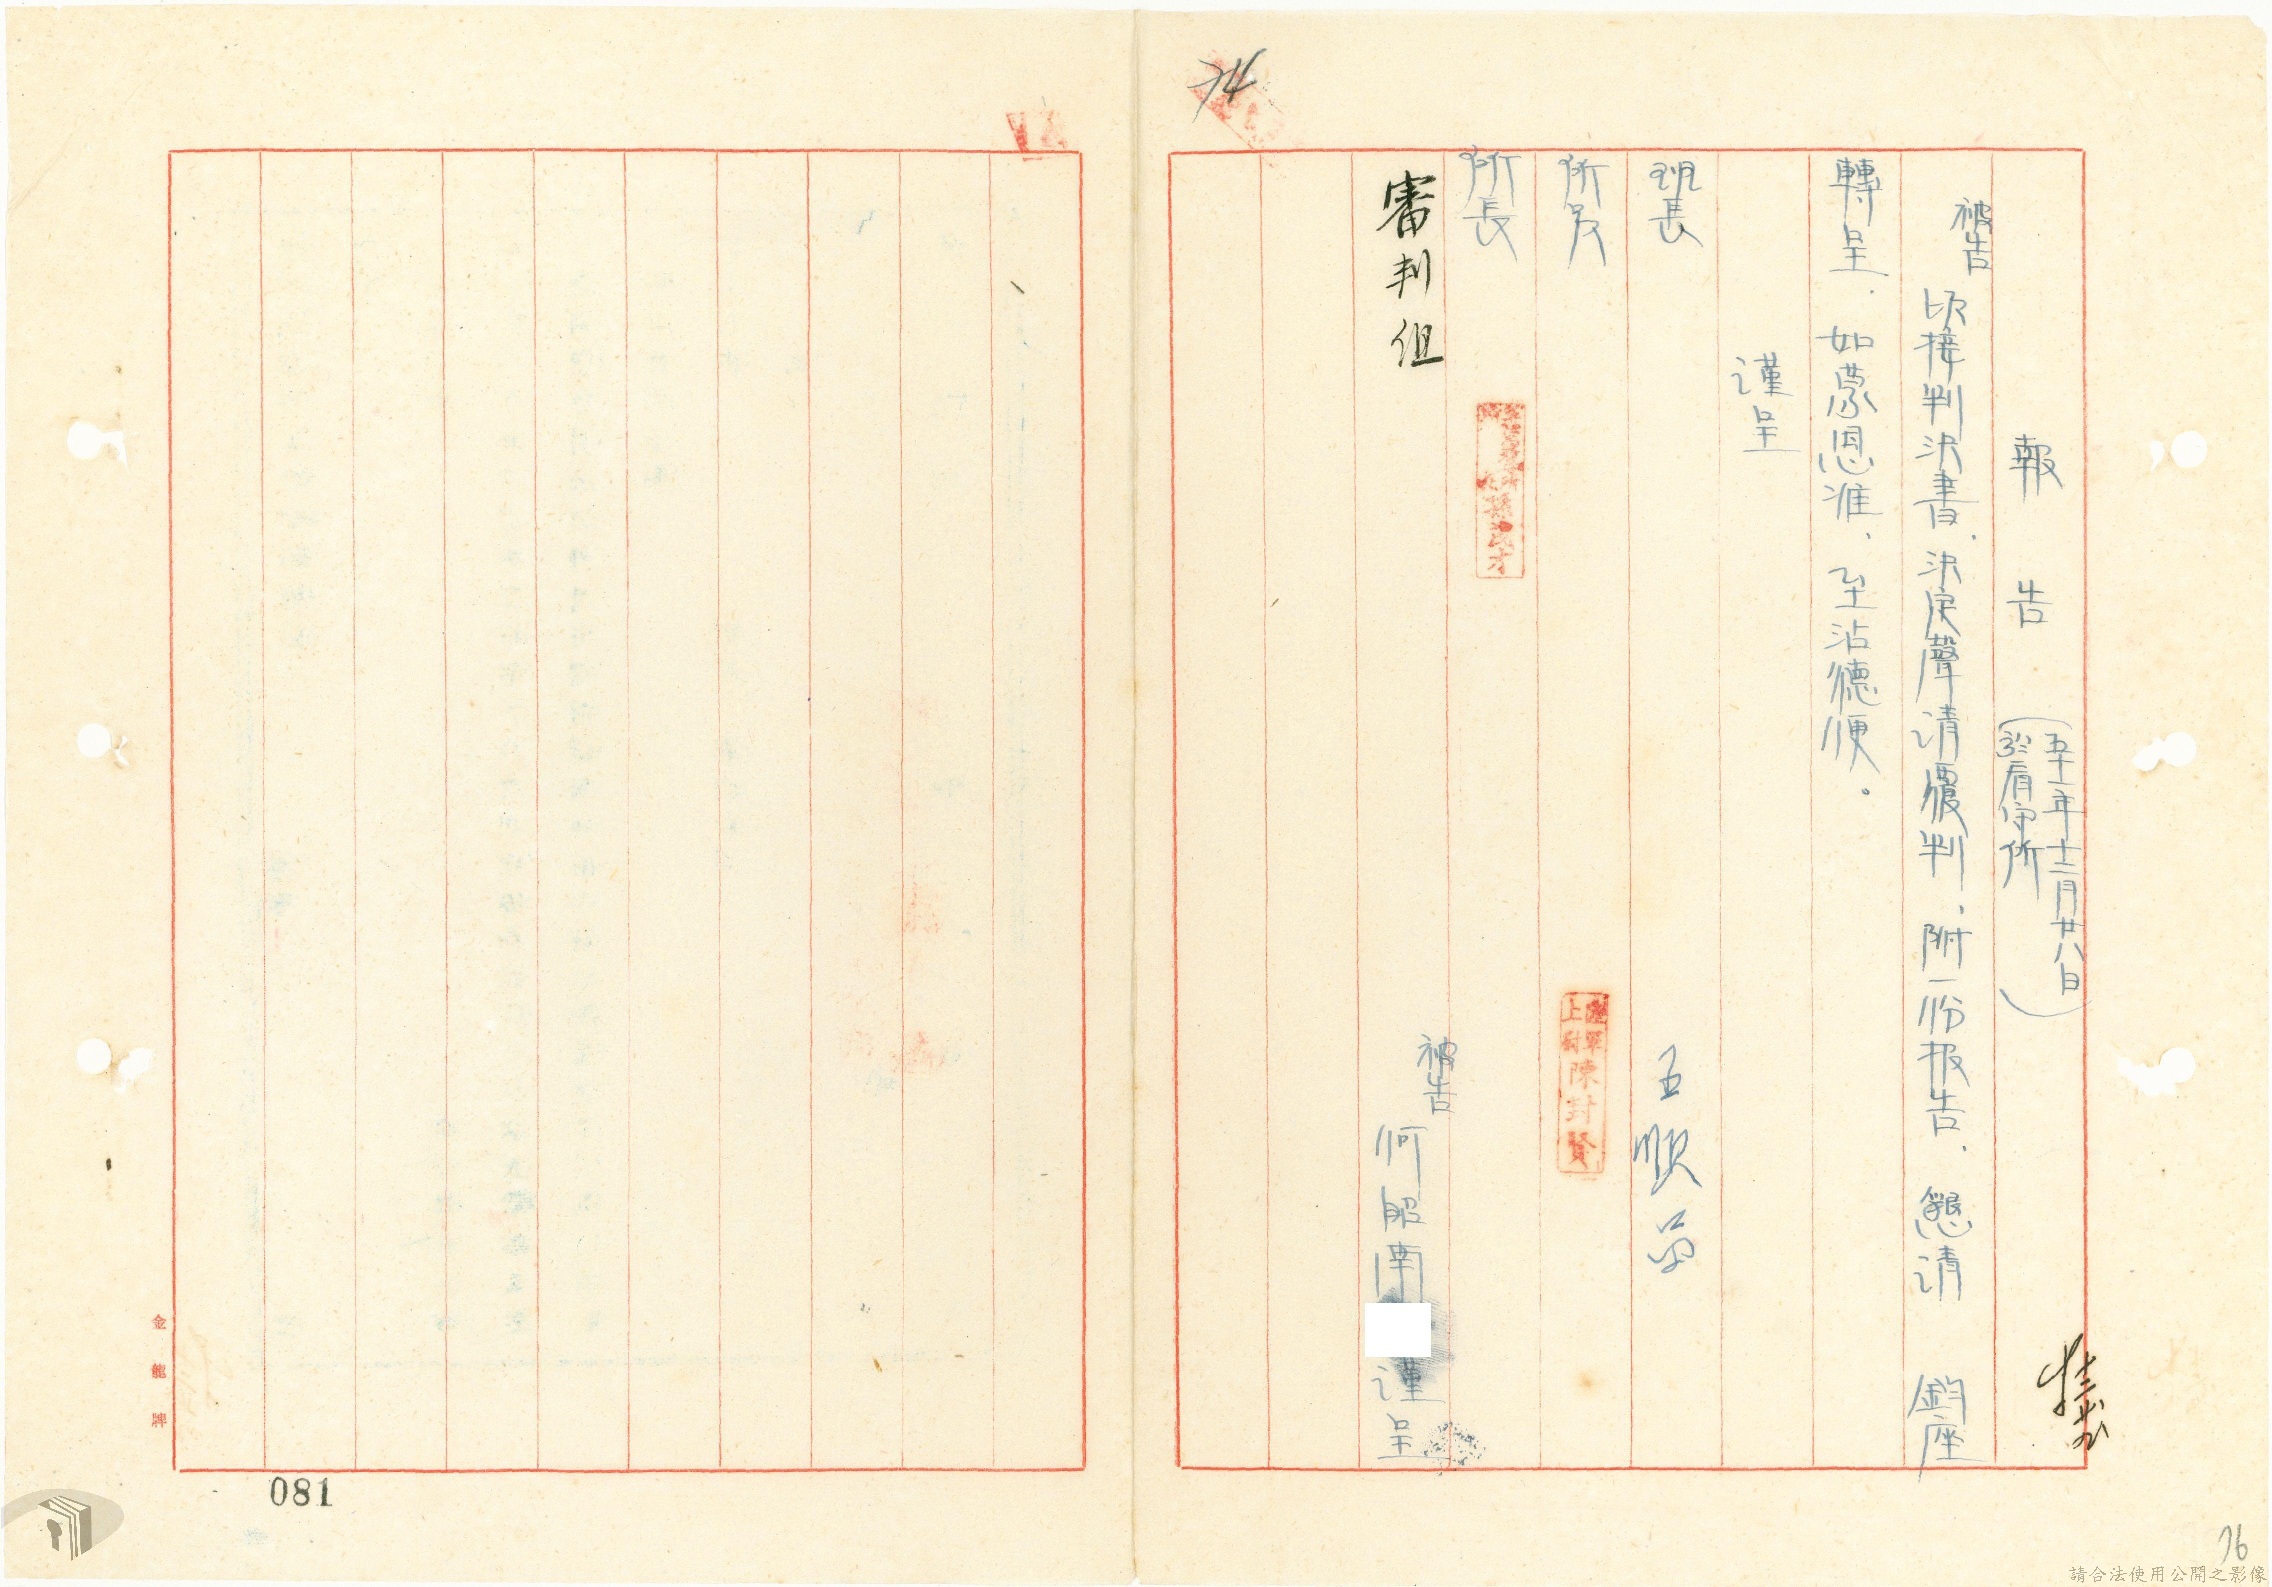 74
報告
(五十一年十二月廿八日
於看守所)
被告
頃接判決書、決定聲請覆判、附一份报告、懇請 鈞座
轉呈、如蒙恩准、至沾德便。
謹呈
班長 王順
所員
陸軍
上尉
陳封賢
所長
審判組
被告
何昭南 謹呈
金龍牌
081
76
請合法使用公開之影像